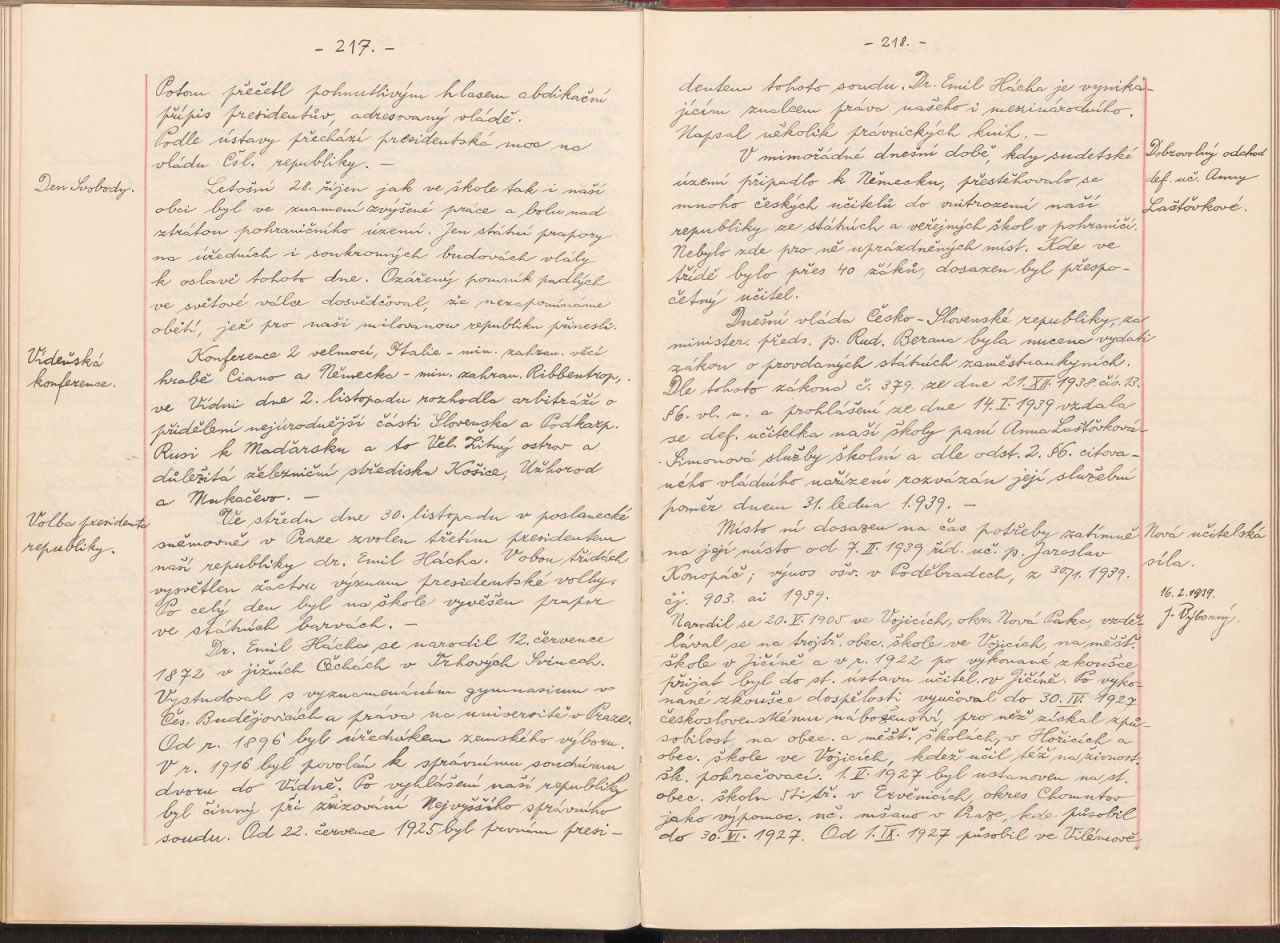 - 217. -
Potom přečetl pohnutlivým hlasem abdikační
přípis presidentův, adresovaný vládě.
Podle ústavy přechází presidentská moc na
vládu Čsl. republiky. -
Den Svobody.
Letošní 28. říjen jak ve škole tak i naší
obci byl ve znamení zvýšené práce a bolu nad
ztrátou pohraničního území. Jen státní prapory
na úředních i soukromých budovách vlály
k oslavě tohoto dne. Ozářený pomník padlých
ve světové válce dosvědčoval, že nezapomínáme
obětí, jež pro naši milovanou republiku přinesli.
Vídeňská
konference.
Konference 2 velmocí, Italie - min. zahran. věcí
hrabě Ciano a Německa - min. zahran. Ribbentrop,
ve Vídni dne 2. listopadu rozhodla arbitráží o
přidělení nejúrodnější části Slovenska a Podkarp.
Rusi k Maďarsku a to Vel. Žitný ostrov a
důležitá železniční střediska Košice, Užhorod
a Mukačevo. -
Volba presidenta
republiky.
Ve středu dne 30. listopadu v poslanecké
sněmovně v Praze zvolen třetím presidentem
naší republiky dr. Emil Hácha. V obou třídách
vysvětlen žactvu význam presidentské volby.
Po celý den byl na škole vyvěšen prapor
ve státních barvách. -
Dr. Emil Hácha se narodil 12. července
1872 v jižních Čechách v Trhových Svinech.
Vystudoval s vyznamenáním gymnasium v
Čes. Budějovicích a práva na universitě v Praze.
Od r. 1896 byl úředníkem zemského výboru.
V r. 1916 byl povolán k správnímu soudnímu
dvoru do Vídně. Po vyhlášení naší republiky
byl činný při zřizování Nejvyššího správního
soudu. Od 22. července 1925 byl prvním presi-
- 218. -
dentem tohoto soudu. Dr. Emil Hácha je vynika-
jícím znalcem práva našeho i mezinárodního.
Napsal několik právnických knih. -
Dobrovolný odchod
def. uč. Anny
Laštůvkové.
V mimořádné dnešní době, kdy sudetské
území připadlo k Německu, přestěhovalo se
mnoho českých učitelů do vnitrozemí naší
republiky ze státních a veřejných škol v pohraničí.
Nebylo zde pro ně uprázdněných míst. Kde ve
třídě bylo přes 40 žáků, dosazen byl přespo-
četný učitel.
Dnešní vláda Česko-Slovenské republiky, za
minister. předs. p. Rud. Berana byla nucena vydati
zákon o provdaných státních zaměstnankyních.
Dle tohoto zákona č. 379. ze dne 21. XII. 1938 čís. 13.
§6. vl. n. a prohlášení ze dne 14. I. 1939 vzdala
se def. učitelka naší školy paní Anna Laštůvková-
Šimonová služby školní a dle odst. 2. §6. citova-
ného vládního nařízení rozvázán její služební
poměr dnem 31. ledna 1939. -
Nová učitelská
síla.
Místo ní dosazen na čas potřeby zatímně
na její místo od 7. II. 1939 říd. uč. p. Jaroslav
Konopáč; výnos ošv. v Poděbradech, z 30/1. 1939.
čj. 903. ai 1939.
16. 2. 1939.
J. Výborný.
Narodil se 20. V. 1905 ve Vojicích, okr. Nová Paka, vzdě-
lával se na trojtř. obec. škole ve Vojicích, na měšť.
škole v Jičíně a v r. 1922 po vykonané zkoušce
přijat byl do st. ústavu učitel. v Jičíně. Po vyko-
nané zkoušce dospělosti vyučoval do 30. IV. 1927
československému náboženství, pro něž získal způ-
sobilost na obec. a měšť. školách, v Hořicích a
obec. škole ve Vojicích, kdež učil též na živnost.
šk. pokračovací. 1. V. 1927 byl ustanoven na st.
obec. školu v Ervěnicích, okres Chomutov
jako výpomoc. uč. mšano v Praze, kde působil
do 30. VI. 1927. Od 1. IX. 1927 působil ve Vilémově